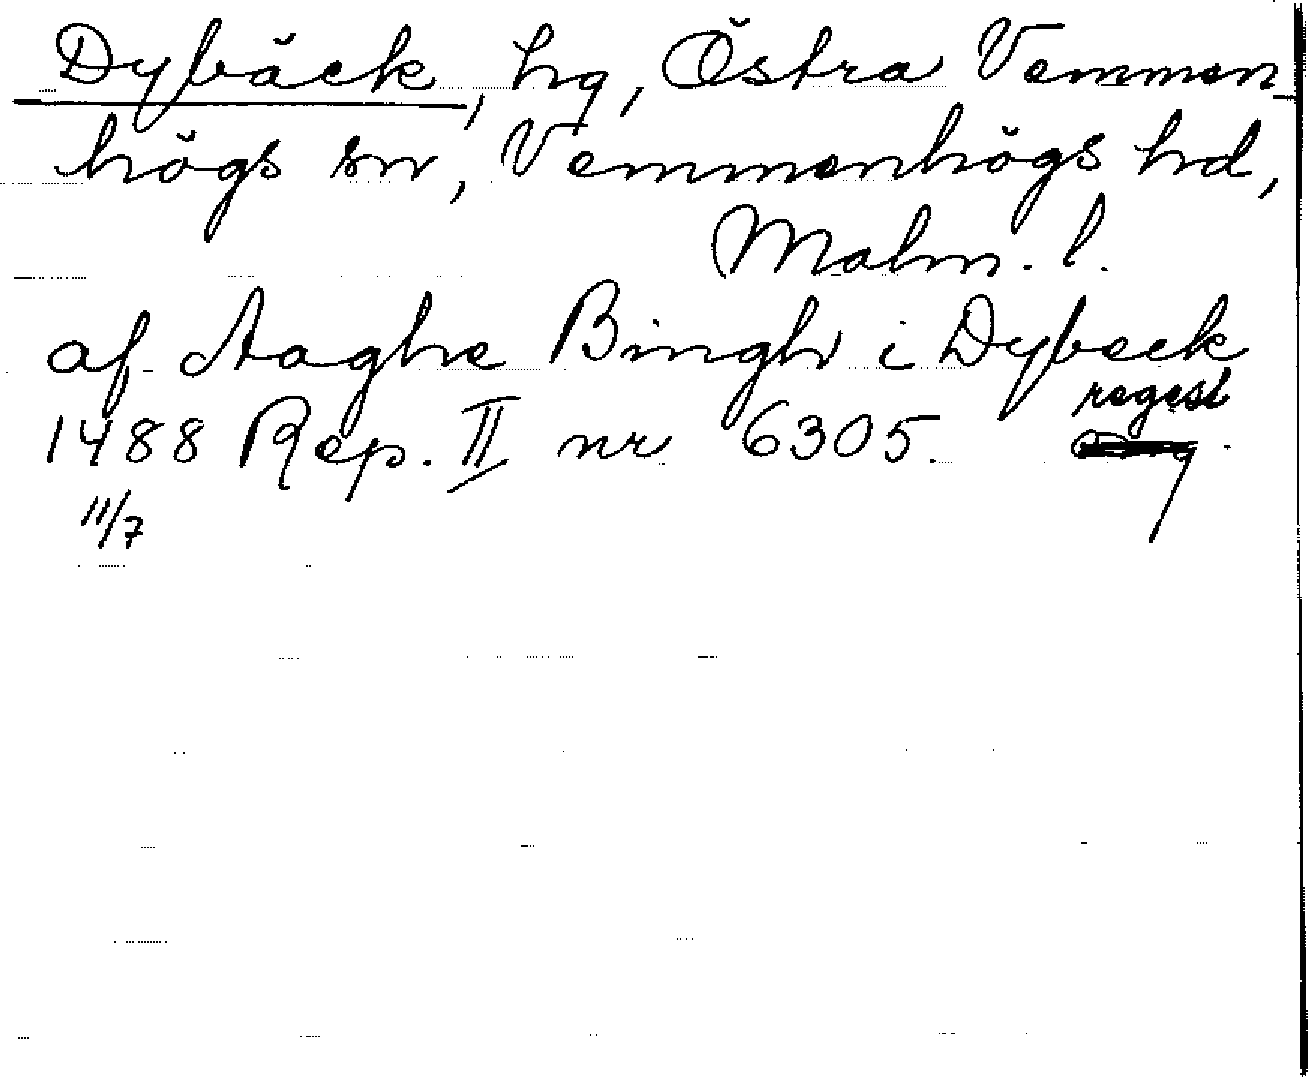 Dybäck, hg, Östra Vemmen-
högs sn, Vemmenhögs hd,
Malm. l.
af Aaghe Bingh i Dybeck
1488 Rep. II nr 6305. regest
11/7